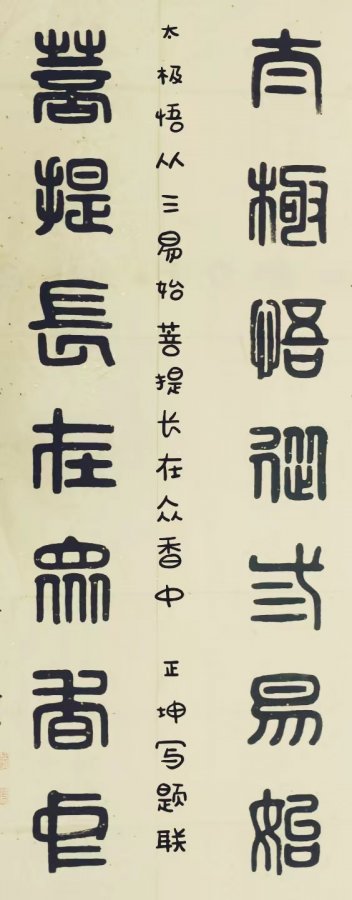 太極悟從弎易始
太极悟从三易始菩提长在众香中 正坤写题联
菩提長在眾香中